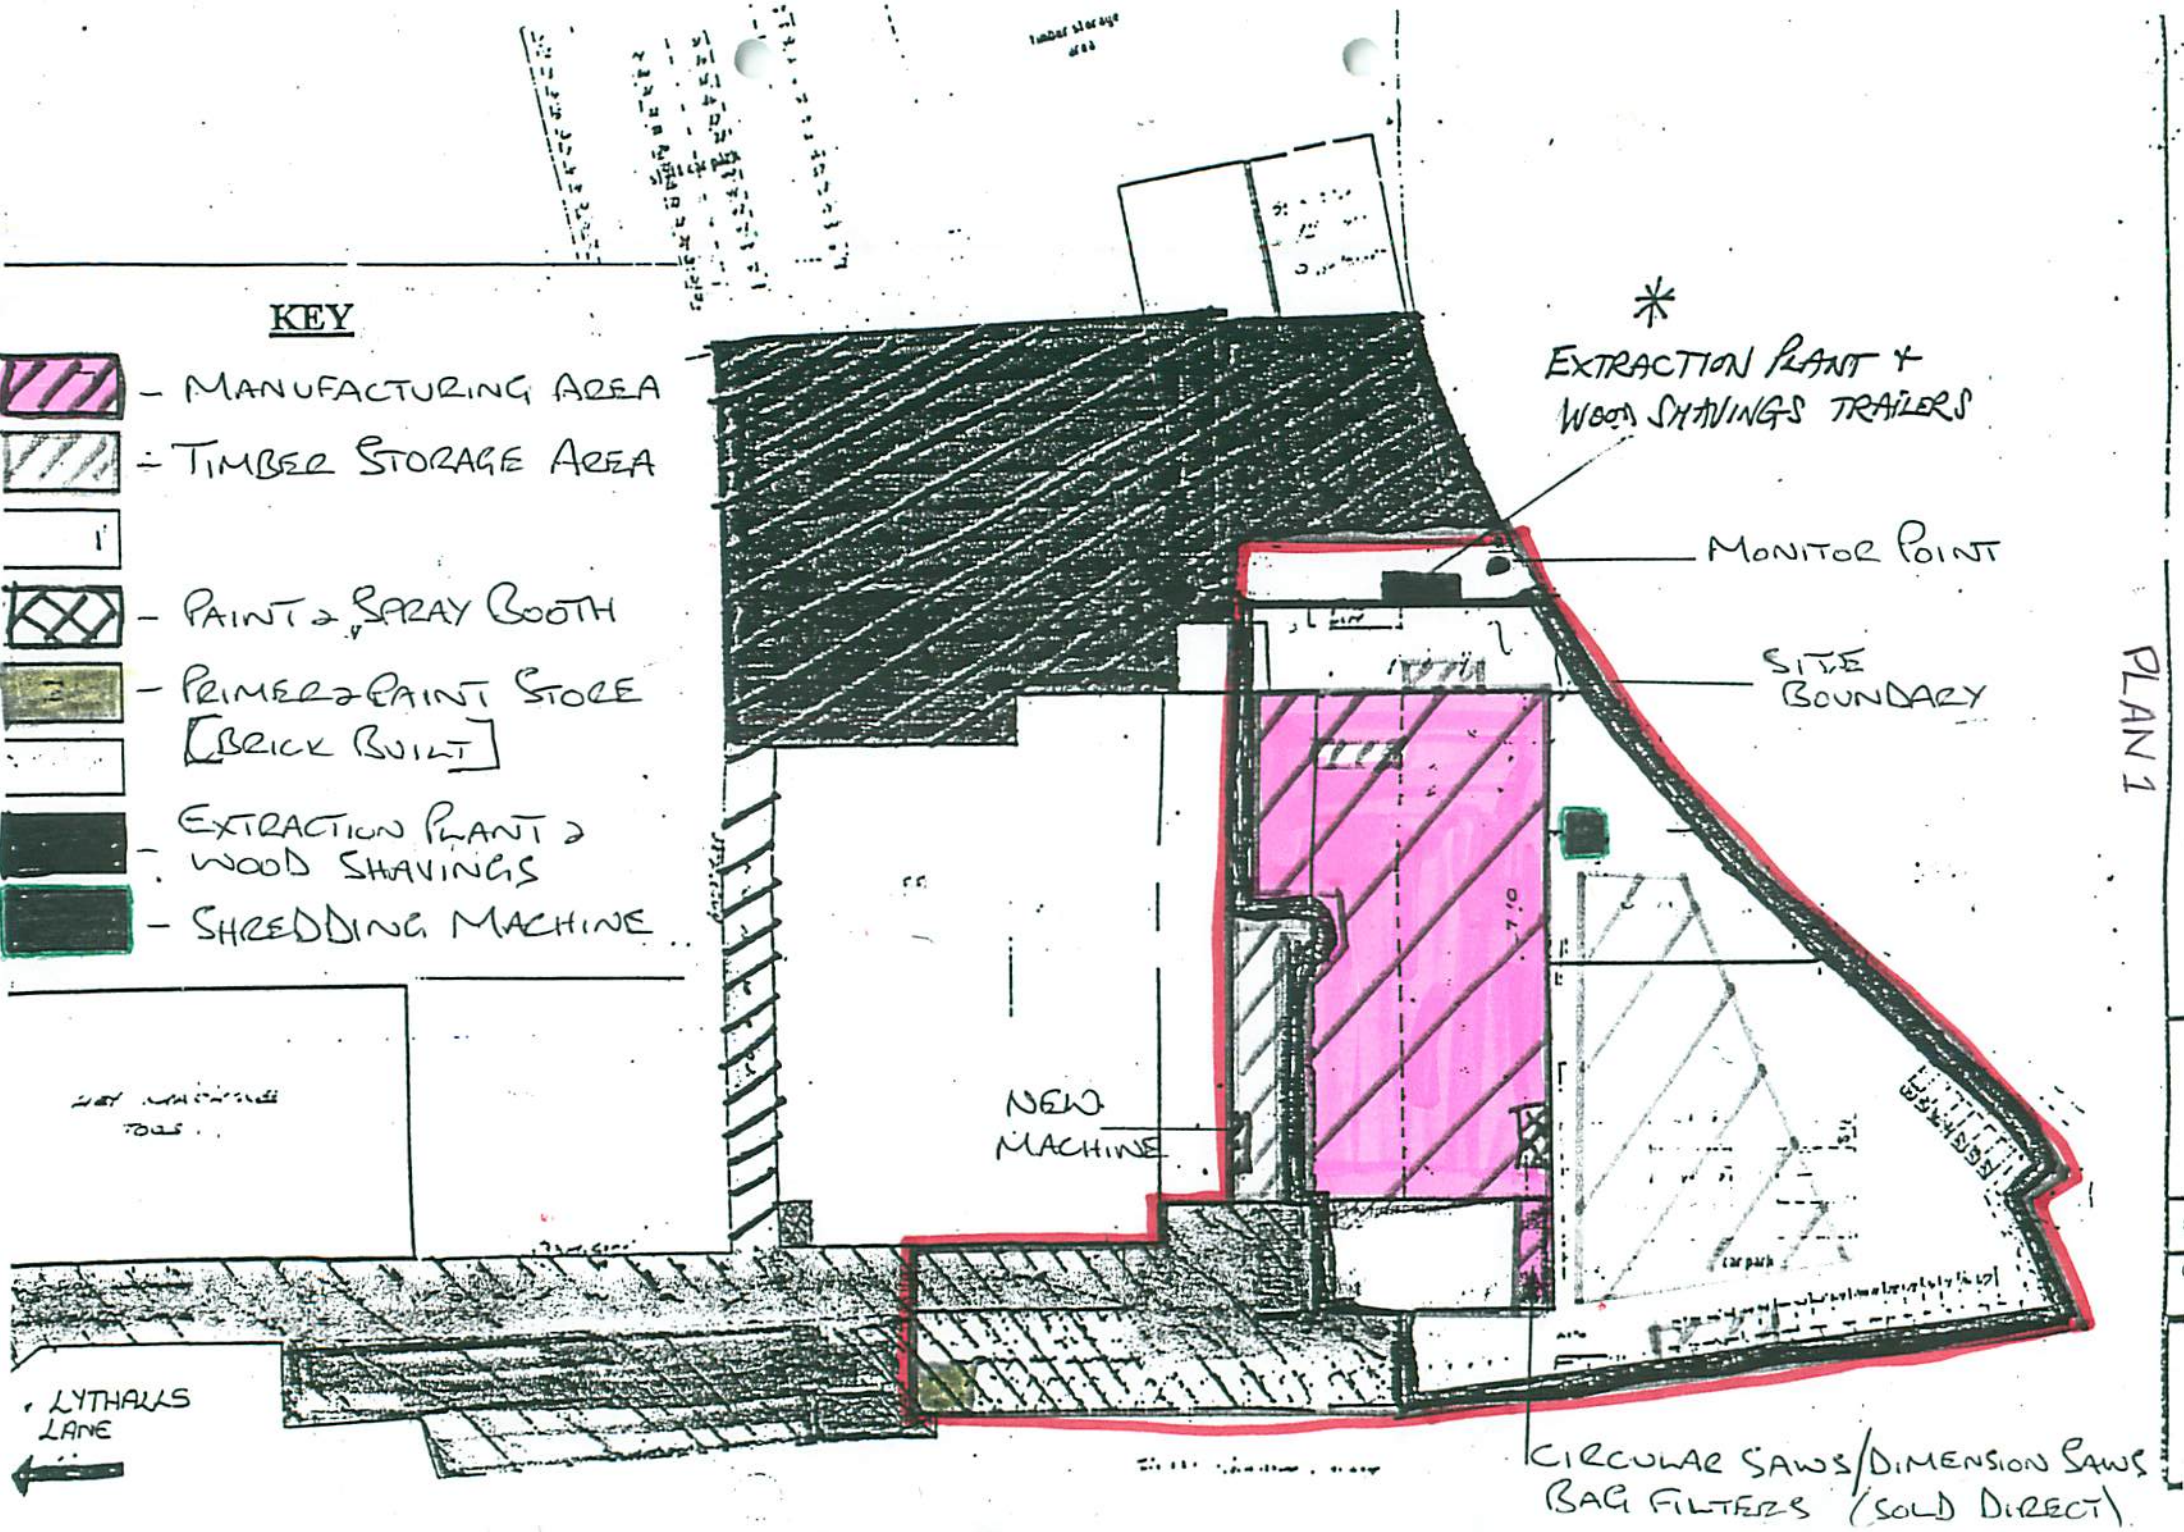 timber storage
area
KEY
- MANUFACTURING AREA
- TIMBER STORAGE AREA
- PAINT & SPRAY BOOTH
- PRIMER & PAINT STORE
[BRICK BUILT]
- EXTRACTION PLANT &
WOOD SHAVINGS
- SHREDDING MACHINE
*
EXTRACTION PLANT +
WOOD SHAVINGS TRAILERS
MONITOR POINT
SITE
BOUNDARY
PLAN 1
NEW
MACHINE
TOOLS
car park
LYTHALLS
LANE
CIRCULAR SAWS/DIMENSION SAWS
BAG FILTERS (SOLD DIRECT)